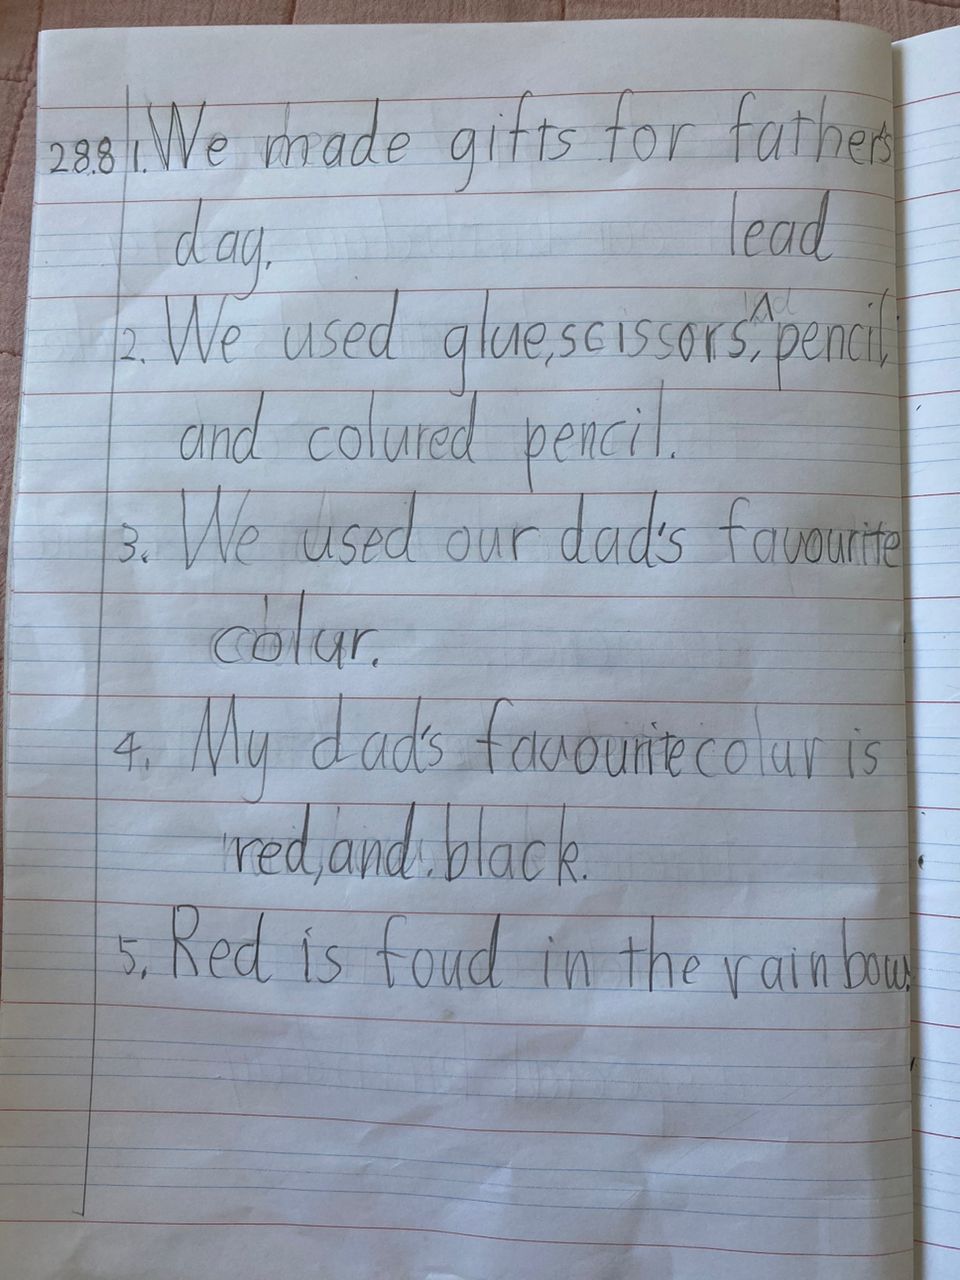 28.8 1. We made gifts for fathers
day. lead
2. We used glue, scissors, ^ pencil,
and colured pencil.
3. We used our dad's favourite
colur.
4. My dad's favourite colur is
red, and. black.
5. Red is foud in the rainbow.